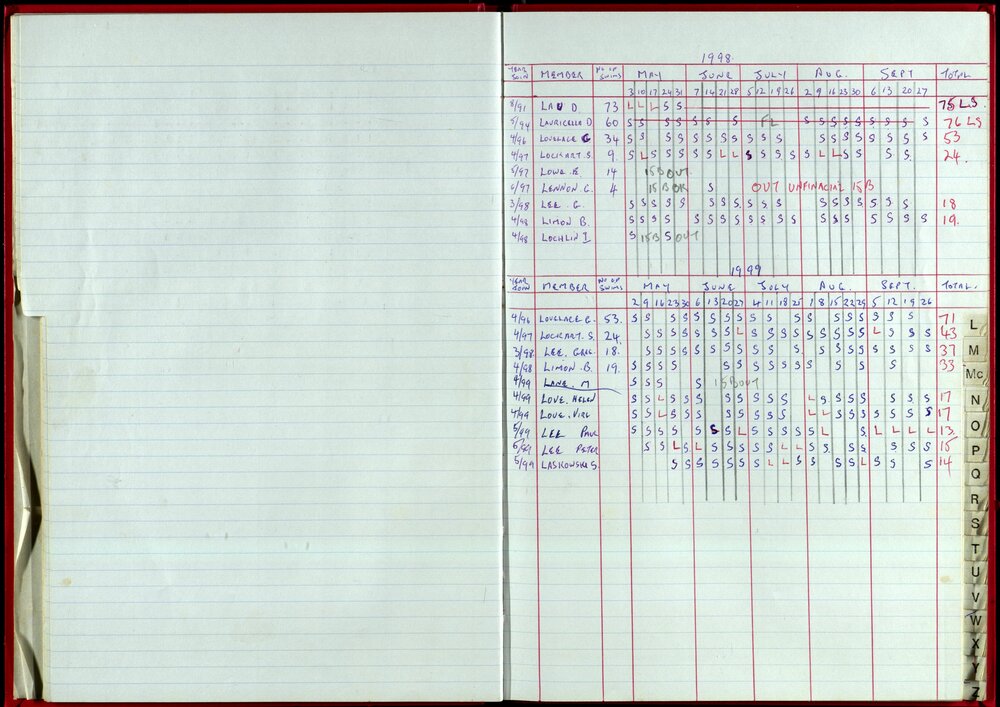 1998
YEAR JOIN MEMBER No OF SWIMS MAY JUNE JULY AUG. SEPT TOTAL
3 10 17 24 31 7 14 21 28 5 12 19 26 2 9 16 23 30 6 13 20 27
8/91 LAU D 73 L L L S S 75 LS
5/94 LAURICELLA D 60 S S S S S S S FL S S S S S S S S S 76 LS
4/96 LOVELACE G 34 S S S S S S S S S S S S S S S S S S S 53
4/97 LOCKHART S. 9. S L S S S S S L L S S S S S L L S S S S 24.
5/97 LOWE 14 15B OUT
6/97 LENNON C. 4 15B OK S OUT UNFINACIAL 15B
3/98 LEE G. S S S S S S S S S S S S S S S S S S 18
4/98 LIMON B. S S S S S S S S S S S S S S S S S S S 19.
4/98 LOCHLIN I S 15B S OUT
1999
YEAR JOIN MEMBER No OF SWIMS MAY JUNE JULY AUG. SEPT. TOTAL.
2 9 16 23 30 6 13 20 27 4 11 18 25 1 8 15 22 29 5 12 19 26
4/96 LOVELACE G. 53. S S S S S S S S S S S S S S S S S S 71
4/97 LOCKHART S. 24. S S S S S S S L S S S S S S S S S L S S S 43
3/98 LEE. GREG. 18. S S S S S S S S S S S S S S S S S S S 37
4/98 LIMON. B. 19. S S S S S S S S S S S S S 33
4/99 LANE. M S S S S 15B OUT
4/99 LOVE. HELEN S S L S S S S S S S S L S S S S S S S 17
4/99 LOVE. VIRG S S L S S S S S S S S L L S S S S S S S 17
5/99 LEE PAUL S S S S S S L S S S S S L S L L L L 13.
5/99 LEE PETER S S L S L S S S S S L L S S S S S S S 15
5/99 LASKOWSKI S. S S S S S S S S L L S S S S L S S S 14
L
M
Mc
N
O
P
Q
R
S
T
U
V
W
X
Y
Z